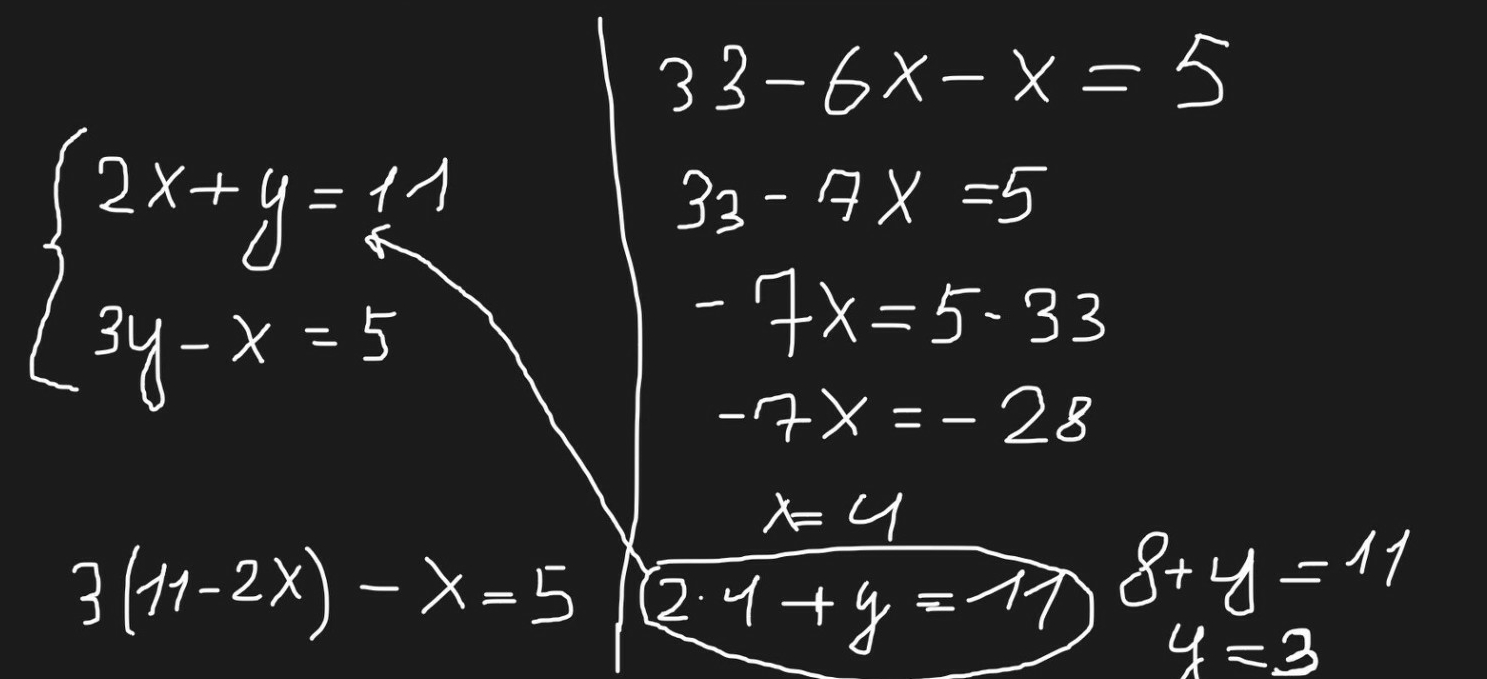 2x+y=11
3y-x=5
3(11-2x)-x=5
33-6x-x=5
33-7x=5
-7x=5-33
-7x=-28
x=4
2·4+y=11
8+y=11
y=3